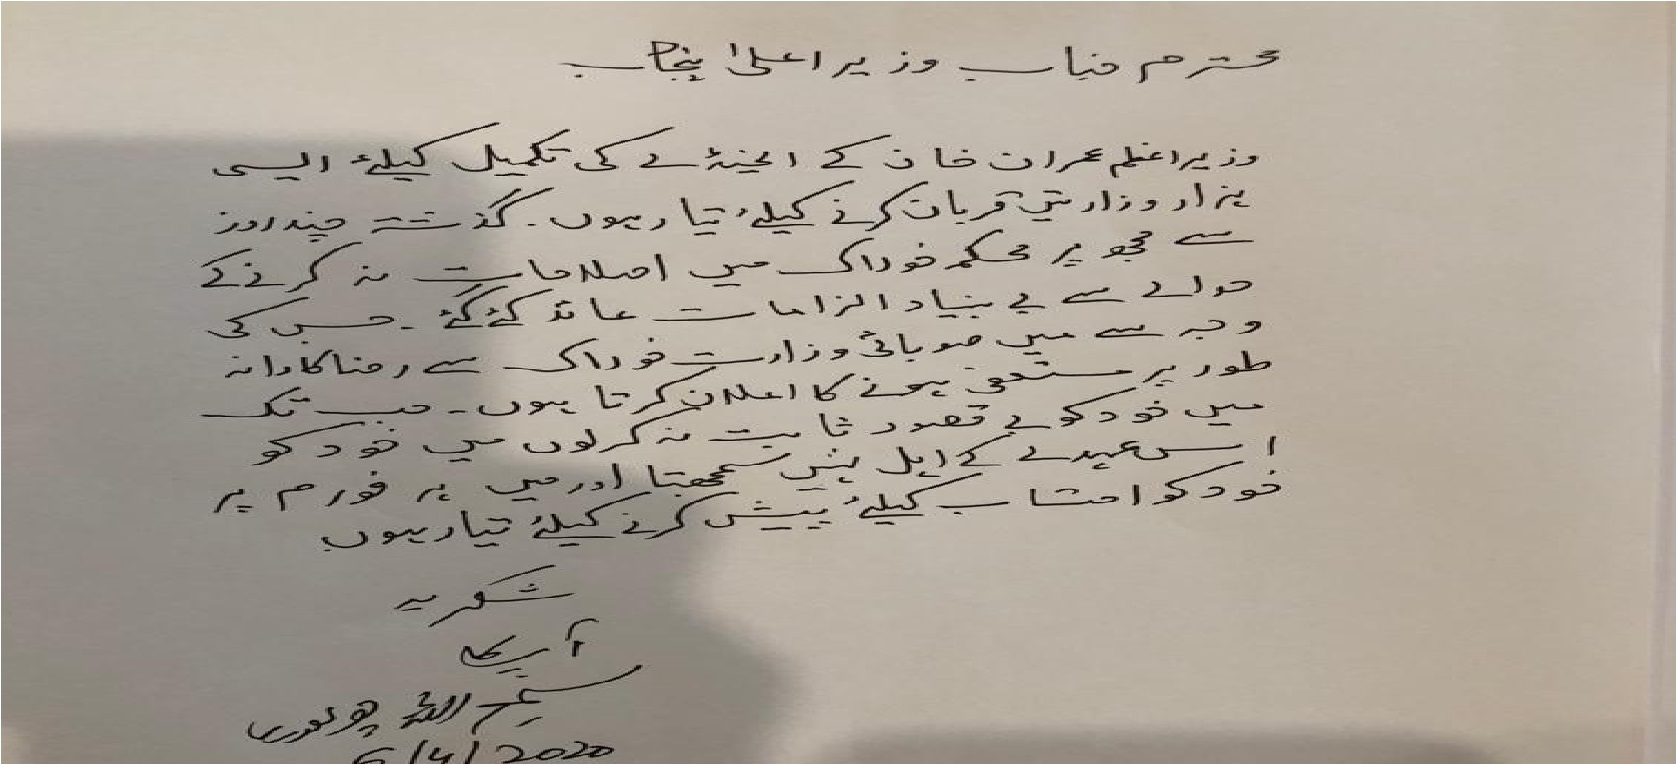 محترم جناب وزیر اعلیٰ پنجاب
وزیر اعظم عمران خان کے ایجنڈے کی تکمیل کیلئے ایسی
ہزار وزارتیں قربان کرنے کیلئے تیار ہوں۔ گذشتہ چند روز
سے مجھ پر محکمہ خوراک میں اصلاحات نہ کرنے کے
حوالے سے بے بنیاد الزامات عائد کئے گئے۔ جس کی
وجہ سے میں صوبائی وزارت خوراک سے رضاکارانہ
طور پر مستعفی ہونے کا اعلان کرتا ہوں۔ جب تک
میں خود کو بے قصور ثابت نہ کرلوں میں خود کو
اس عہدے کے اہل نہیں سمجھتا اور میں ہر فورم پر
خود کو احتساب کیلئے پیش کرنے کیلئے تیار ہوں
شکریہ
آپ کا
سمیع اللہ چوہدری
6/4/2020